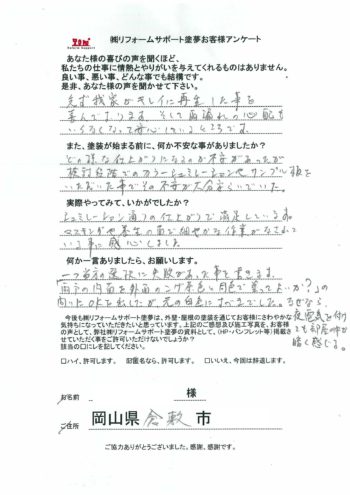 ㈱リフォームサポート塗夢お客様アンケート
あなた様の喜びの声を聞くほど、
私たちの仕事に情熱とやりがいを与えてくれるものはありません。
良い事、悪い事、どんな事でも結構です。
是非、あなた様の声を聞かせて下さい。
先ず我家がキレイに再生した事を
喜んでおります。そして雨漏れの心配も
いらなくなって安心しているところです。
また、塗装が始まる前に、何か不安な事がありましたか？
どの様な仕上がりになるのか不安があったが
検討段階でのカラーシュミレーションやサンプル板を
いただいた事でその不安が大分やわらいでいた。
実際やってみて、いかがでしたか？
シュミレーション通りの仕上がりで満足しています。
マスキングや養生の面で細やかな作業がなされて
いる事に感心しました。
何か一言ありましたら、お願いします。
一つ当方の選択に失敗があった事を書きます。
「雨戸の内面を外面のこげ茶色と同色で塗ってよいか？」の
問いにOKを
元の白色に
なら、
夜電気を付け
ても部屋の中が
暗く感じる。
今後も㈱リフォームサポート塗夢は、外壁・屋根の塗装を通じてお客様にさわやかな
気持ちになっていただきたいと思っています。上記のご感想及び施工写真を、お客様
の声として、弊社㈱リフォームサポート塗夢の資料として、(HP・パンフレット等)掲載さ
せていただく事をご許可いただけないでしょうか？
該当の口にレを記してください。
□ハイ、許可します。 匿名なら、許可します。 □いいえ、今回は辞退します。
お名前 様
ご住所 岡山県 倉敷 市
ご協力ありがとうございました。感謝、感謝です。